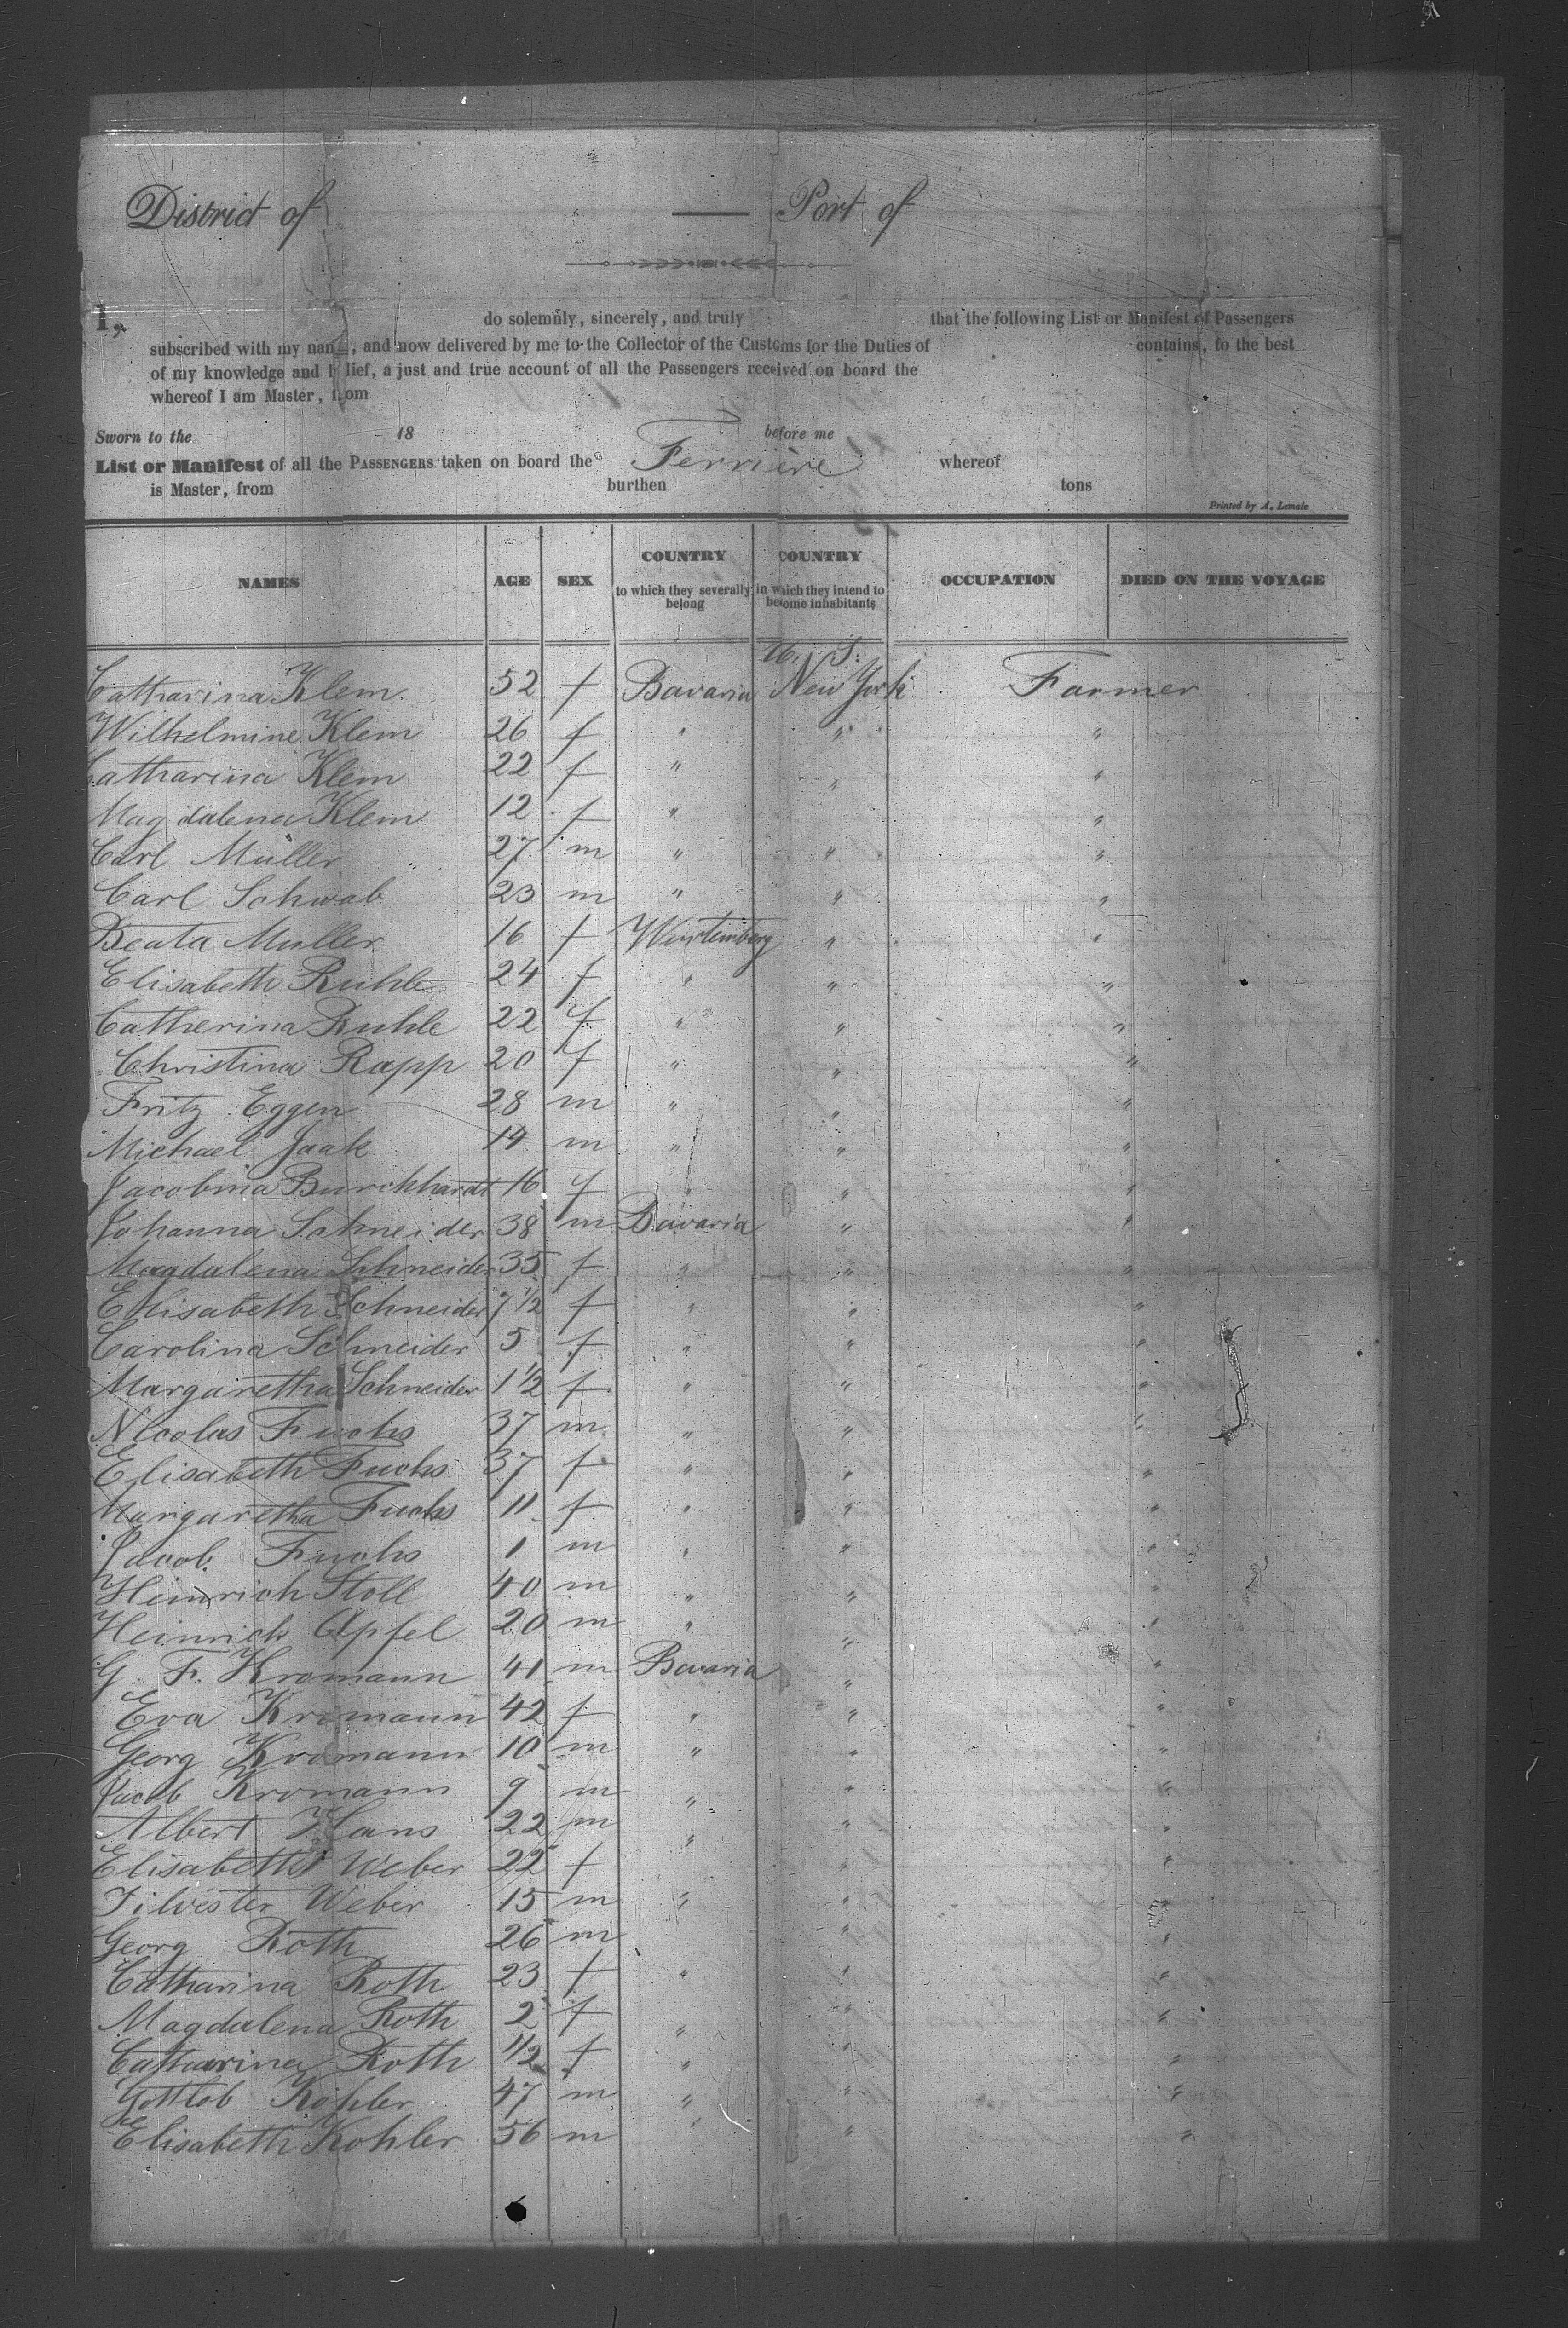 District of — Port of
I, do solemnly, sincerely, and truly that the following List or Manifest of Passengers
subscribed with my name, and now delivered by me to the Collector of the Customs for the Duties of contains, to the best
of my knowledge and belief, a just and true account of all the Passengers received on board the
whereof I am Master, from
Sworn to the 18 before me
List or Manifest of all the PASSENGERS taken on board the Ferrière whereof
is Master, from burthen tons
Printed by A. Lemale
NAMES AGE SEX COUNTRY to which they severally belong COUNTRY in which they intend to become inhabitants OCCUPATION DIED ON THE VOYAGE
Catharina Klem 52 f Bavaria New York Farmer
Wilhelmine Klem 26 f " " "
Catharina Klem 22 f " " "
Magdalena Klem 12 f " " "
Carl Müller 27 m " " "
Carl Schwab 23 m " " "
Beata Muller 16 f Wurtemberg " "
Elisabeth Ruhle 24 f " " "
Catherina Ruhle 22 f " " "
Christina Rapp 20 f " " "
Fritz Eggen 28 m " " "
Michael Jaak 14 m " " "
Jacobina Burckhardt 16 f " " "
Johanna Schneider 38 m Bavaria " "
Magdalena Schneider 35 f " " "
Elisabeth Schneider 7 1/2 f " " "
Carolina Schneider 5 f " " "
Margaretha Schneider 1 1/2 f " " "
Nicolas Fuchs 37 m " " "
Elisabeth Fuchs 37 f " " "
Margaretha Fuchs 11 f " " "
Jacob Fuchs 1 m " " "
Heinrich Stoll 40 m " " "
Heinrich Apfel 20 m " " "
G. F. Kromann 41 m Bavaria " "
Eva Kromann 42 f " " "
Georg Kromann 10 m " " "
Jacob Kromann 9 m " " "
Albert Hans 22 m " " "
Elisabeth Weber 22 f " "
Silvester Weber 15 m " " "
Georg Roth 26 m " "
Catharina Roth 23 f " " "
Magdalena Roth 2 f " " "
Catharina Roth 1/2 f " " "
Gottlob Kohler 47 m " " "
Elisabeth Kohler 56 m " " "